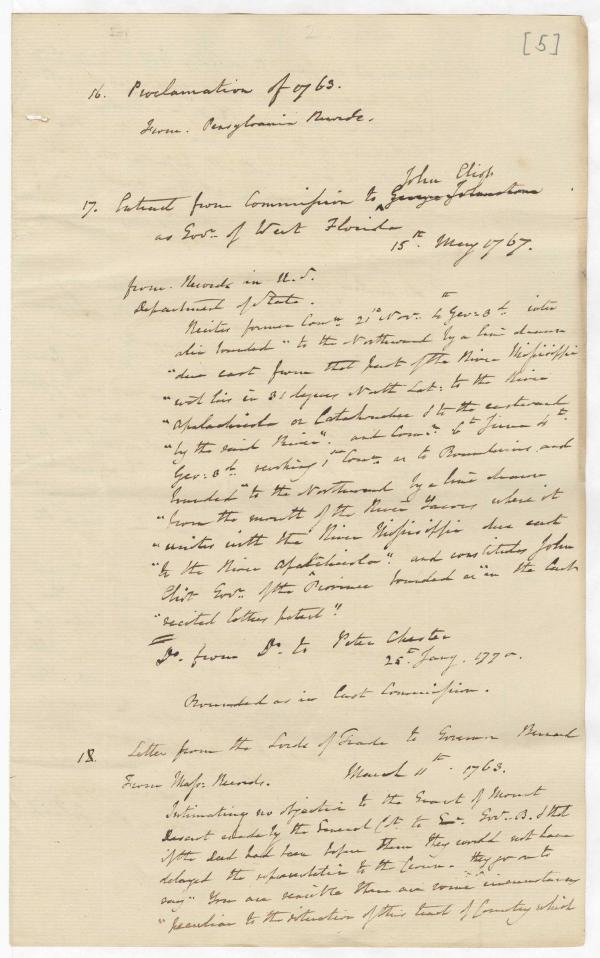 [5]
16. Proclamation of 1763.
From. Pensylvania Records.
John Eliot
17. Extract from Commission to George Johnstone
as Govr. of West Florida
15th. May 1767.
from. Records in U.S.
Department of State.
Recites former Comn. 21st Novr. 4th Geo: 3d. inter
alia bounded "to the Northward by a line drawn
"due east from that part of the River Mississippi
"wch lies in 31 degrees North Lat: to the River
"Apalachicola or Catahouchee & to the eastward
"by the said River". and Comn. 6th June 4th.
Geo: 3d. revoking 1st Comn as to Boundaries and
bounded "to the Northward by a line drawn
"from the mouth of the River Yasous where it
"unites with the River Mississippi due east
"to the River Apalachicola". and constitutes John
Eliot Govr. of the Province bounded as "in the last
"recited letters patent".
Do. from Do. to Peter Chester
25th. Jany. 1770.
Bounded as in last Commission.
18. Letter from the Lords of Trade to Governor Bernard
From Mass. Records. March 11th. 1763.
Intimating no objection to the Grant of Mount
Desart made by the General Ct. to Govr. B. & that
if the deed had been before them they would not have
delayed the representation to the Crown. they go on to
say "You are sensible there are some circumstances
"peculiar to the situation of this tract of Country which